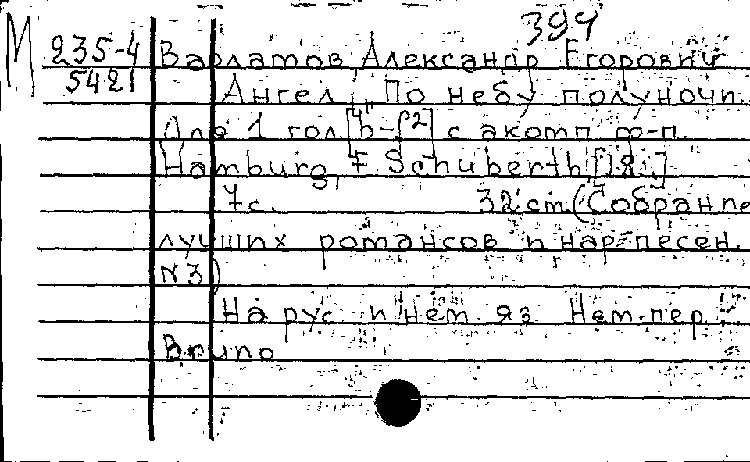 394
М 235-4 Варламов, Александр Егорович
5421 Ангел „По небу полуночи"
Для 1 гол [b-f2] с акомп ф-п.
Hamburg, F Schuberth,
7с. 32 ст. (Собрание
лучших романсов и нар песен.
N3)
На рус и нем. яз Нем. пер.
Bruno